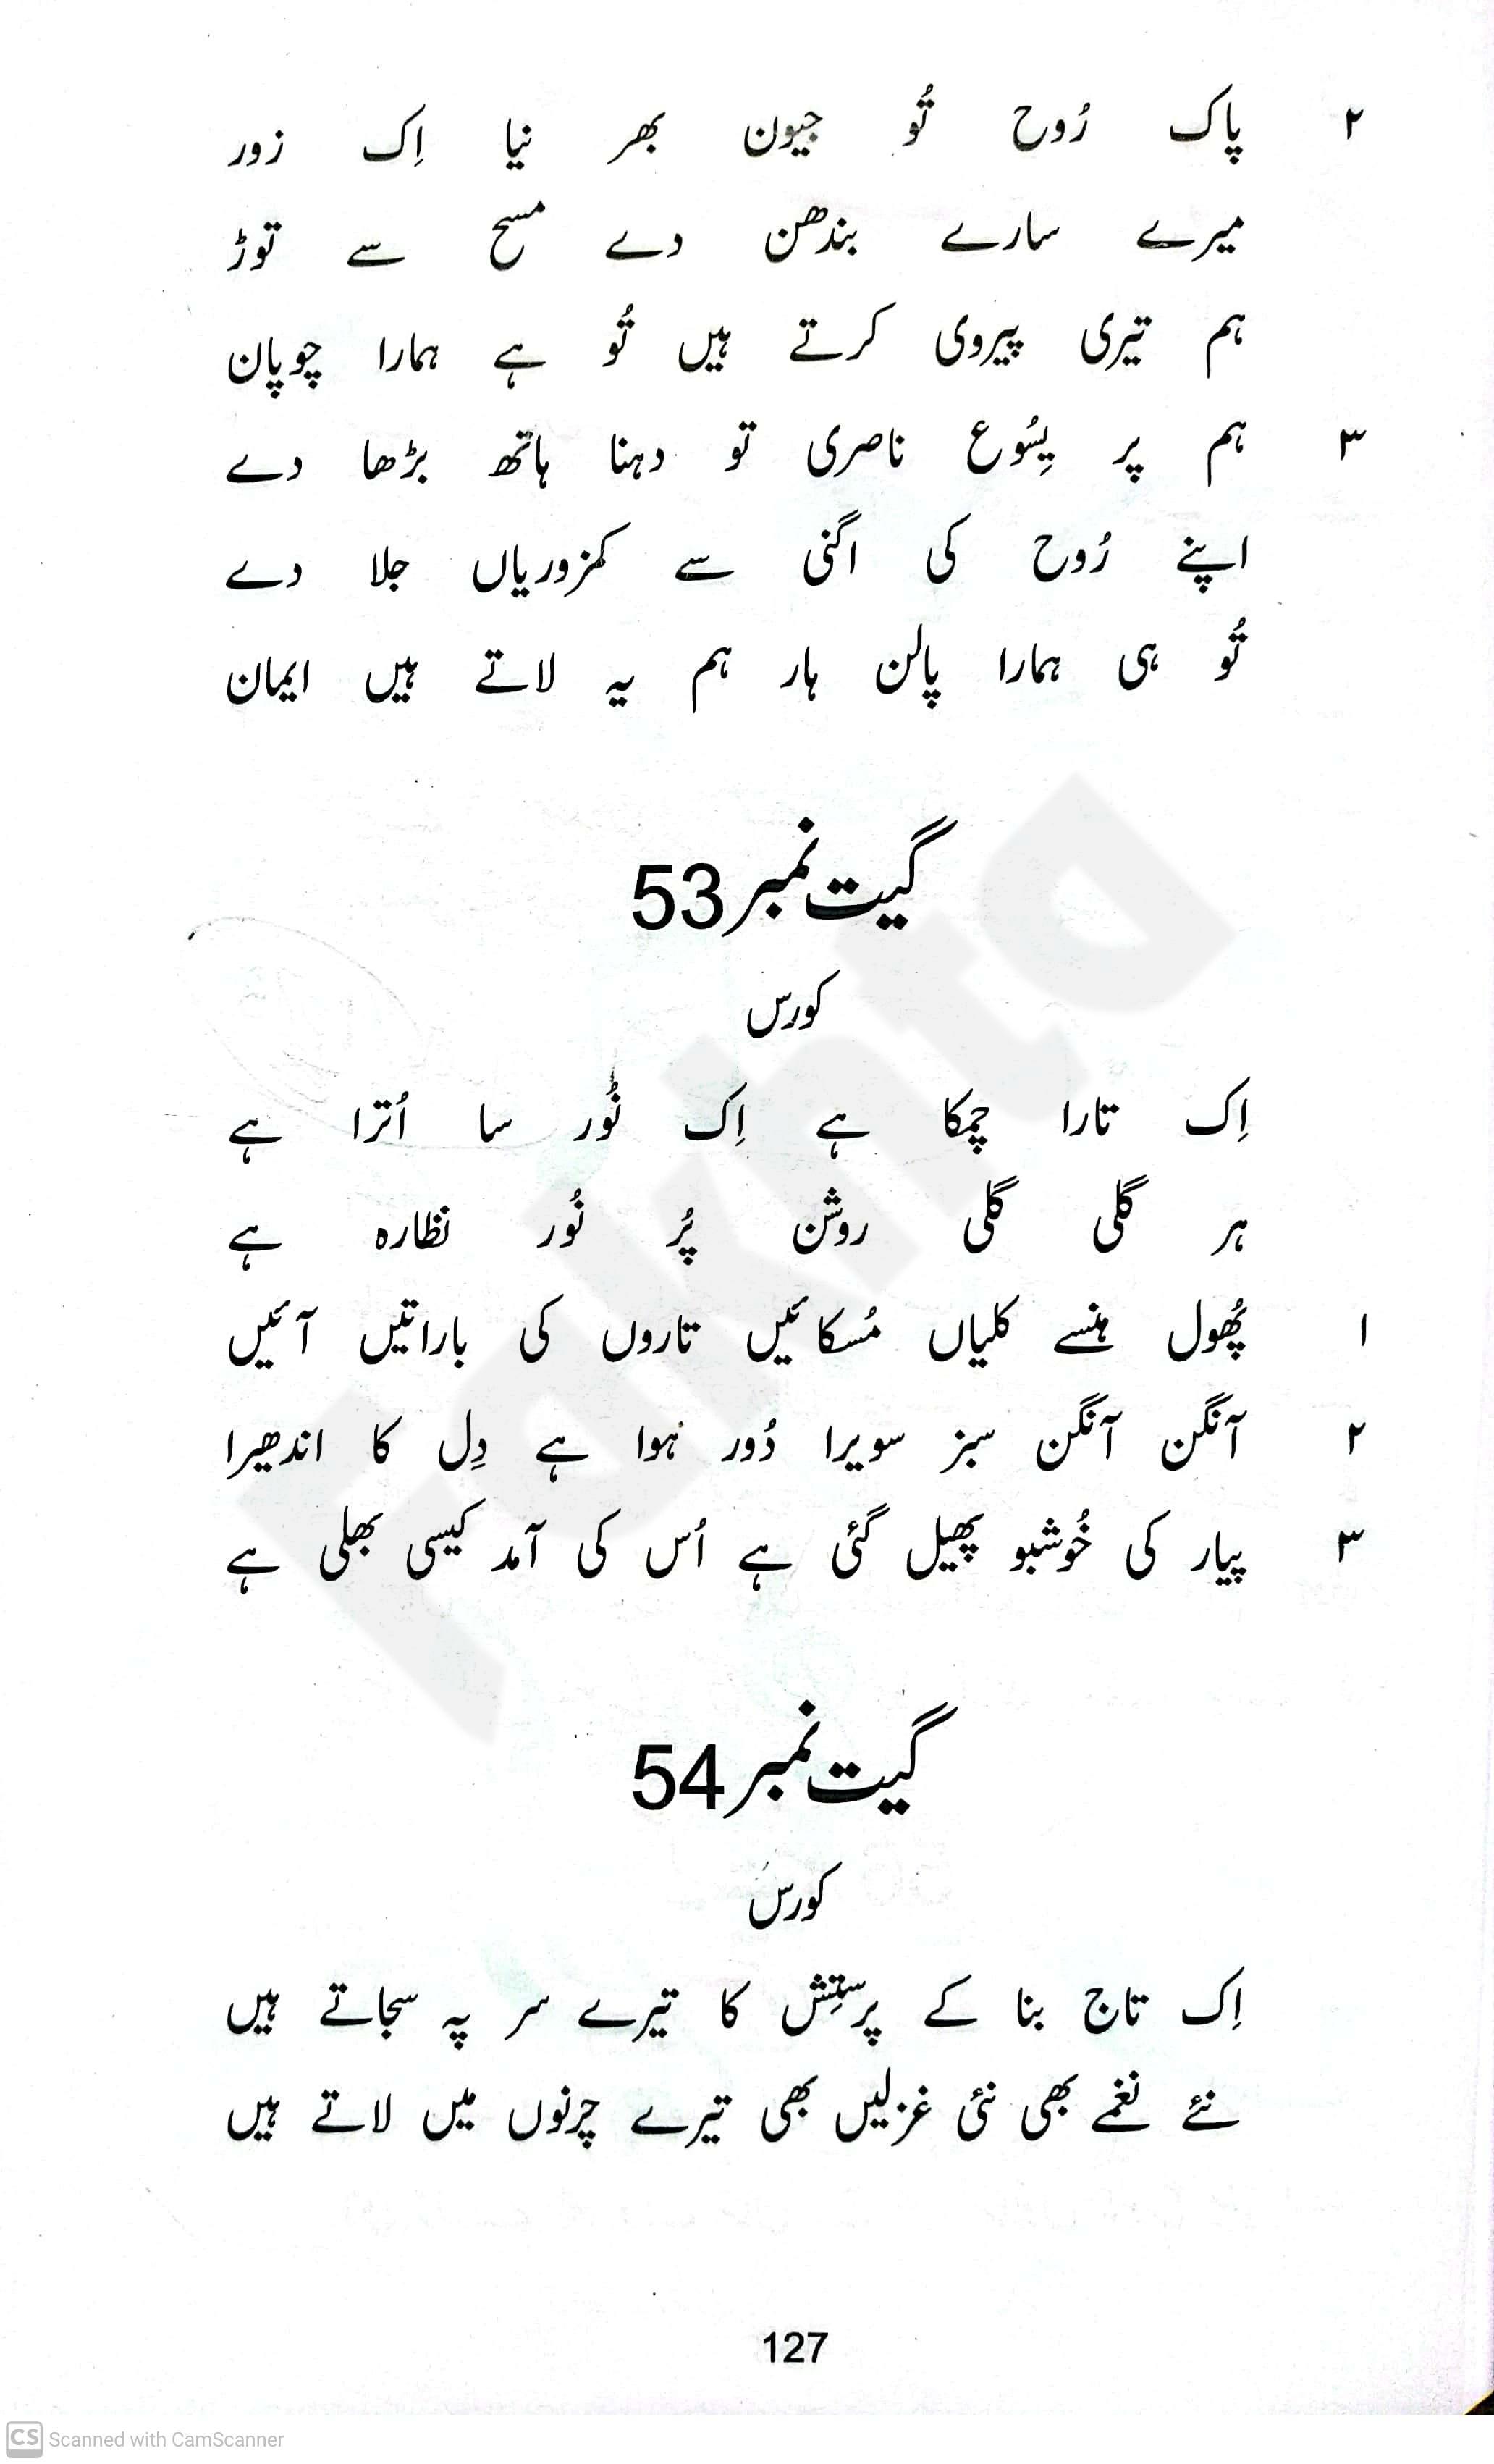 ۲ پاک رُوح تُو جیون بھر نیا اِک زور
میرے سارے بندھن دے مسح سے توڑ
ہم تیری پیروی کرتے ہیں تُو ہے ہمارا چوپان
۳ ہم پر یِسُوع ناصری تو دہنا ہاتھ بڑھا دے
اپنے رُوح کی اگنی سے کمزوریاں جلا دے
تُو ہی ہمارا پالن ہار ہم یہ لاتے ہیں ایمان
گیت نمبر 53
کورس
اِک تارا چمکا ہے اِک نُور سا اُترا ہے
ہر گلی گلی روشن پُر نُور نظارہ ہے
۱ پُھول ہنسے کلیاں مُسکائیں تاروں کی باراتیں آئیں
۲ آنگن آنگن سبز سویرا دُور ہوا ہے دِل کا اندھیرا
۳ پیار کی خُوشبو پھیل گئی ہے اُس کی آمد کیسی بھلی ہے
گیت نمبر 54
کورس
اِک تاج بنا کے پرستِش کا تیرے سر پہ سجاتے ہیں
نئے نغمے بھی نئی غزلیں بھی تیرے چرنوں میں لاتے ہیں
127
Fakhta
CS Scanned with CamScanner